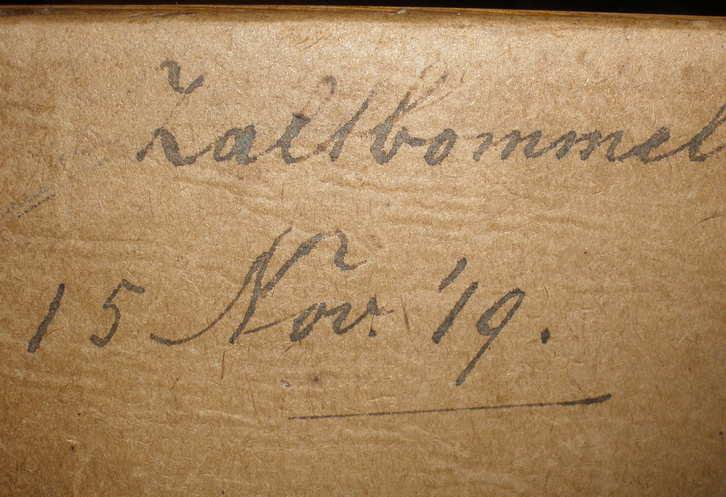 Zaltbommel
15 Nov. '19.